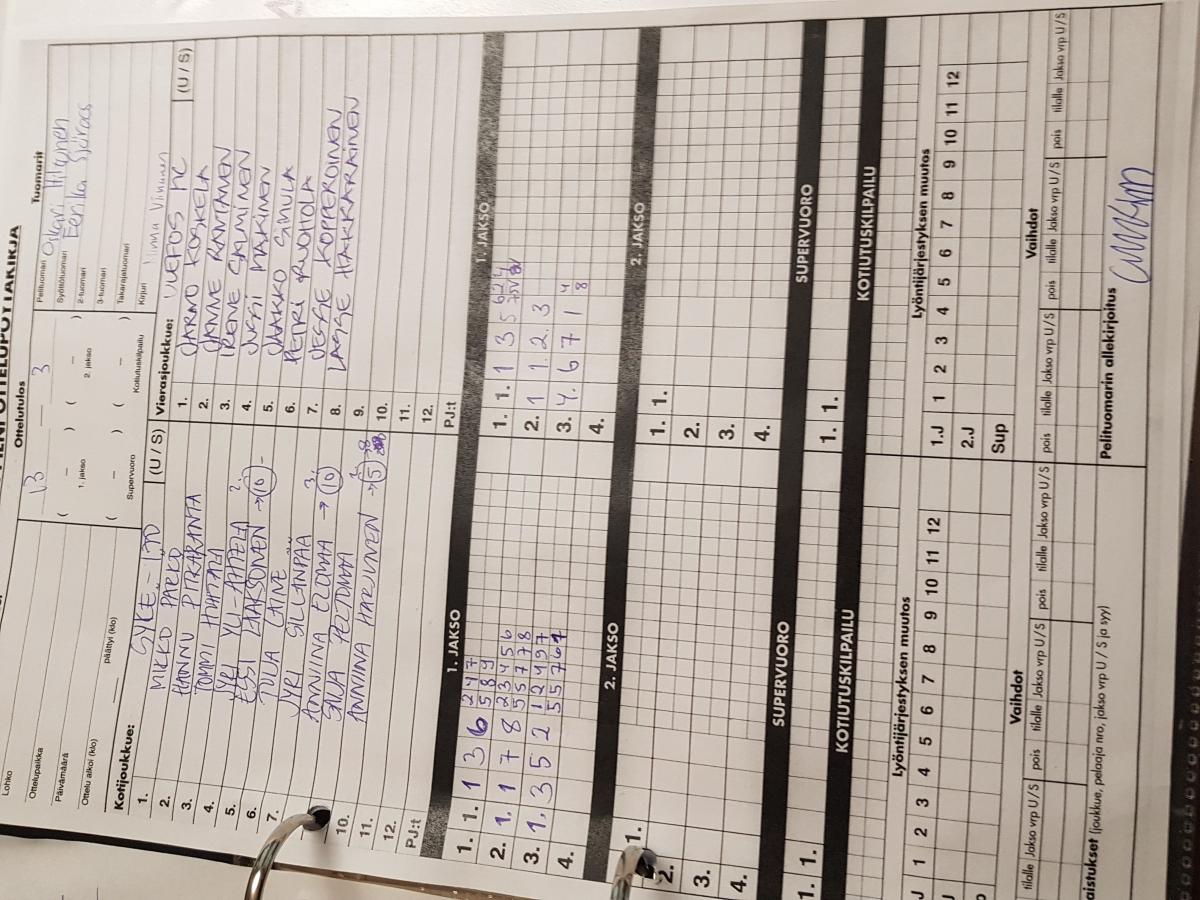 PIENI OTTELUPÖYTÄKIRJA
Lohko
Ottelupaikka
Päivämäärä
Ottelu alkoi (klo) päättyi (klo)
Ottelutulos
13 – 3
( – ) ( – )
1. jakso 2. jakso
( – ) ( – )
Supervuoro Kotiutuskilpailu
Tuomarit
Pelituomari Oskari Hilanen
Syöttötuomari Eerika Sjöroos
2-tuomari
3-tuomari
Takarajatuomari
Kirjuri Minna Viinanen
Kotijoukkue: SYKE (U / S)
1. MIKKO PARKO
2. HANNU PITKÄRANTA
3. TOMMI HUHTALA
4. JYRI YLI-ANTTILA
5. ESSI LAAKSONEN → 10
6. TUIJA LAINE
7. JYRI SILLANPÄÄ
ANNIINA ELOMAA → 10
SAIJA PELTOMAA
10. ANNIINA HARJUNEN → 5
11.
12.
PJ:t
Vierasjoukkue: UUEFOS PC (U / S)
1. JARMO KOSKELA
2. JANNE RANTANEN
3. IRENE SALMINEN
4. JUSSI MÄKINEN
5. JAAKKO SIMULA
6. PETRI RUOHOLA
7. JESSE KOPPEROINEN
8. LASSE HAKKARAINEN
9.
10.
11.
12.
PJ:t
1. JAKSO
1. 1. 1 3 6 2 4 7
5 8 9
2. 1. 1 7 8 2 3 4 5 6
5 5 7 7 8
3. 1. 3 5 2 1 2 4 9 7
5 5 7 6
4.
1. JAKSO
1. 1. 1 3 5
2. 1 1. 2. 3
3. 4. 6 7 1 4
8
4.
2. JAKSO
1.
2.
3.
4.
2. JAKSO
1. 1.
2.
3.
4.
SUPERVUORO
1. 1.
SUPERVUORO
1. 1.
KOTIUTUSKILPAILU
KOTIUTUSKILPAILU
Lyöntijärjestyksen muutos
J 1 2 3 4 5 6 7 8 9 10 11 12
J
Lyöntijärjestyksen muutos
1.J 1 2 3 4 5 6 7 8 9 10 11 12
2.J
Sup
Vaihdot
tilalle Jakso vrp U / S pois tilalle Jakso vrp U / S pois tilalle Jakso vrp U / S
Vaihdot
pois tilalle Jakso vrp U / S pois tilalle Jakso vrp U / S pois tilalle Jakso vrp U / S
aistukset (joukkue, pelaaja nro, jakso vrp U / S ja syy)
Pelituomarin allekirjoitus